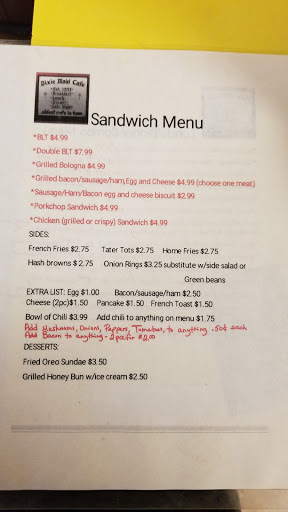 Dixie Maid Cafe
oldest cafe in town
Sandwich Menu
*BLT $4.99
*Double BLT $7.99
*Grilled Bologna $4.99
*Grilled bacon/sausage/ham,Egg and Cheese $4.99 (choose one meat)
*Sausage/Ham/Bacon egg and cheese biscuit $2.99
*Porkchop Sandwich $4.99
*Chicken (grilled or crispy) Sandwich $4.99
SIDES:
French Fries $2.75 Tater Tots $2.75 Home Fries $2.75
Hash browns $ 2.75 Onion Rings $3.25 substitute w/side salad or
Green beans
EXTRA LIST: Egg $1.00 Bacon/sausage/ham $2.50
Cheese (2pc)$1.50 Pancake $1.50 French Toast $1.50
Bowl of Chili $3.99 Add chili to anything on menu $1.75
Add Mushrooms, Onions, Peppers, Tomatoes, to anything .50¢ each
Add Bacon to anything - 2pcs for $2.00
DESSERTS:
Fried Oreo Sundae $3.50
Grilled Honey Bun w/ice cream $2.50